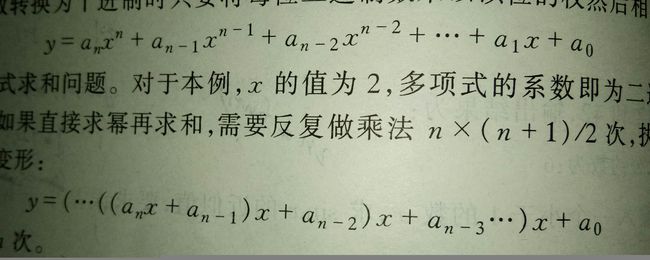 转换为十进制时只要将每位二进制数
y = aₙxⁿ + aₙ₋₁xⁿ⁻¹ + aₙ₋₂xⁿ⁻² + ⋯ + a₁x + a₀
式求和问题。对于本例, x 的值为 2, 多项式的系数即为二
如果直接求幂再求和, 需要反复做乘法 n × (n + 1)/2 次,
变形:
y = (⋯((aₙx + aₙ₋₁)x + aₙ₋₂)x + aₙ₋₃⋯)x + a₀
次。